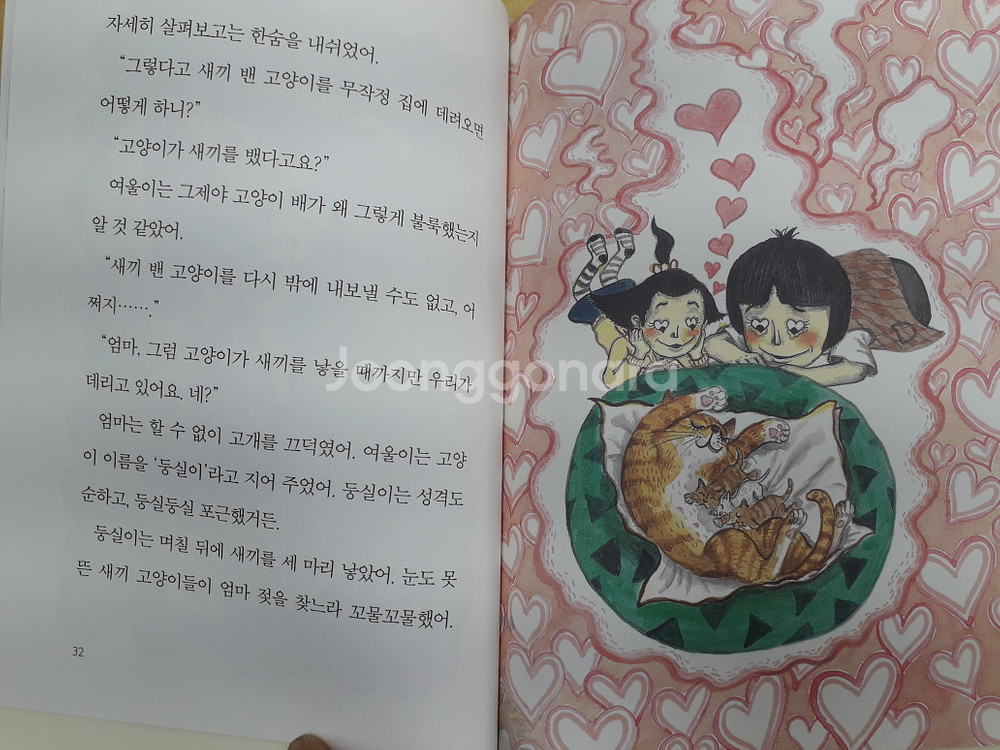 자세히 살펴보고는 한숨을 내쉬었어.
“그렇다고 새끼 밴 고양이를 무작정 집에 데려오면
어떻게 하니?”
“고양이가 새끼를 뱄다고요?”
여울이는 그제야 고양이 배가 왜 그렇게 불룩했는지
알 것 같았어.
“새끼 밴 고양이를 다시 밖에 내보낼 수도 없고, 어
쩌지…….”
“엄마, 그럼 고양이가 새끼를 낳을 때까지만 우리가
데리고 있어요. 네?”
엄마는 할 수 없이 고개를 끄덕였어. 여울이는 고양
이 이름을 ‘둥실이’라고 지어 주었어. 둥실이는 성격도
순하고, 둥실둥실 포근했거든.
둥실이는 며칠 뒤에 새끼를 세 마리 낳았어. 눈도 못
뜬 새끼 고양이들이 엄마 젖을 찾느라 꼬물꼬물했어.
32
Joonggonara